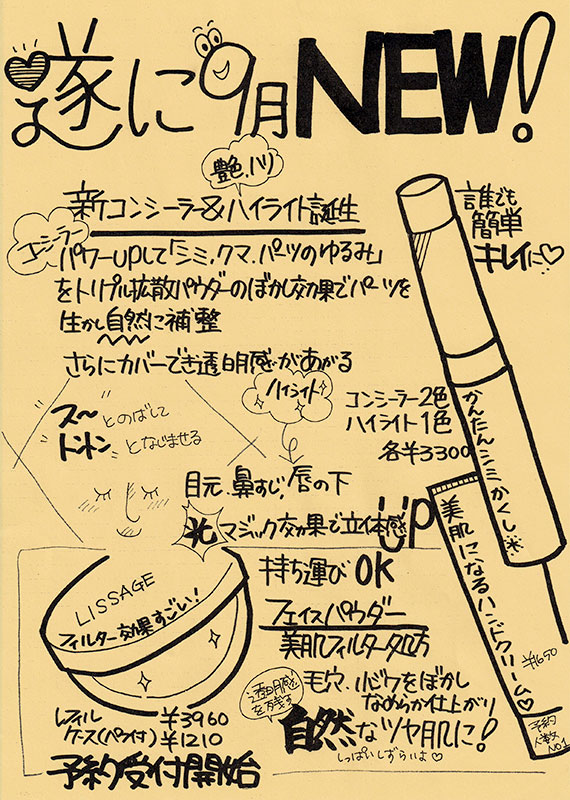 遂に9月NEW!
艶、ハリ
新コンシーラー&ハイライト誕生
コンシーラー
パワーUPして「シミ、クマ、パーツのゆるみ」
をトリプル拡散パウダーのぼかし効果でパーツを
生かし自然に補整
さらにカバーでき透明感があがる
誰でも
簡単
キレイに♡
ス〜とのばして
トントンとなじませる
ハイライト
コンシーラー2色
ハイライト1色
各¥3300
かんたんシミかくし
目元、鼻すじ、唇の下
光マジック効果で立体感UP
持ち運びOK
美肌になるハンドクリーム♡
¥1650
予約
人数
NO.1
LISSAGE
フィルター効果すごい!
フェイスパウダー
美肌フィルター処方
毛穴、小ジワをぼかし
なめらか仕上がり
透明感
を残す
自然なツヤ肌に!
しっぱいしずらいよ♡
レフィル ¥3960
ケース(パフ付) ¥1210
予約受付開始